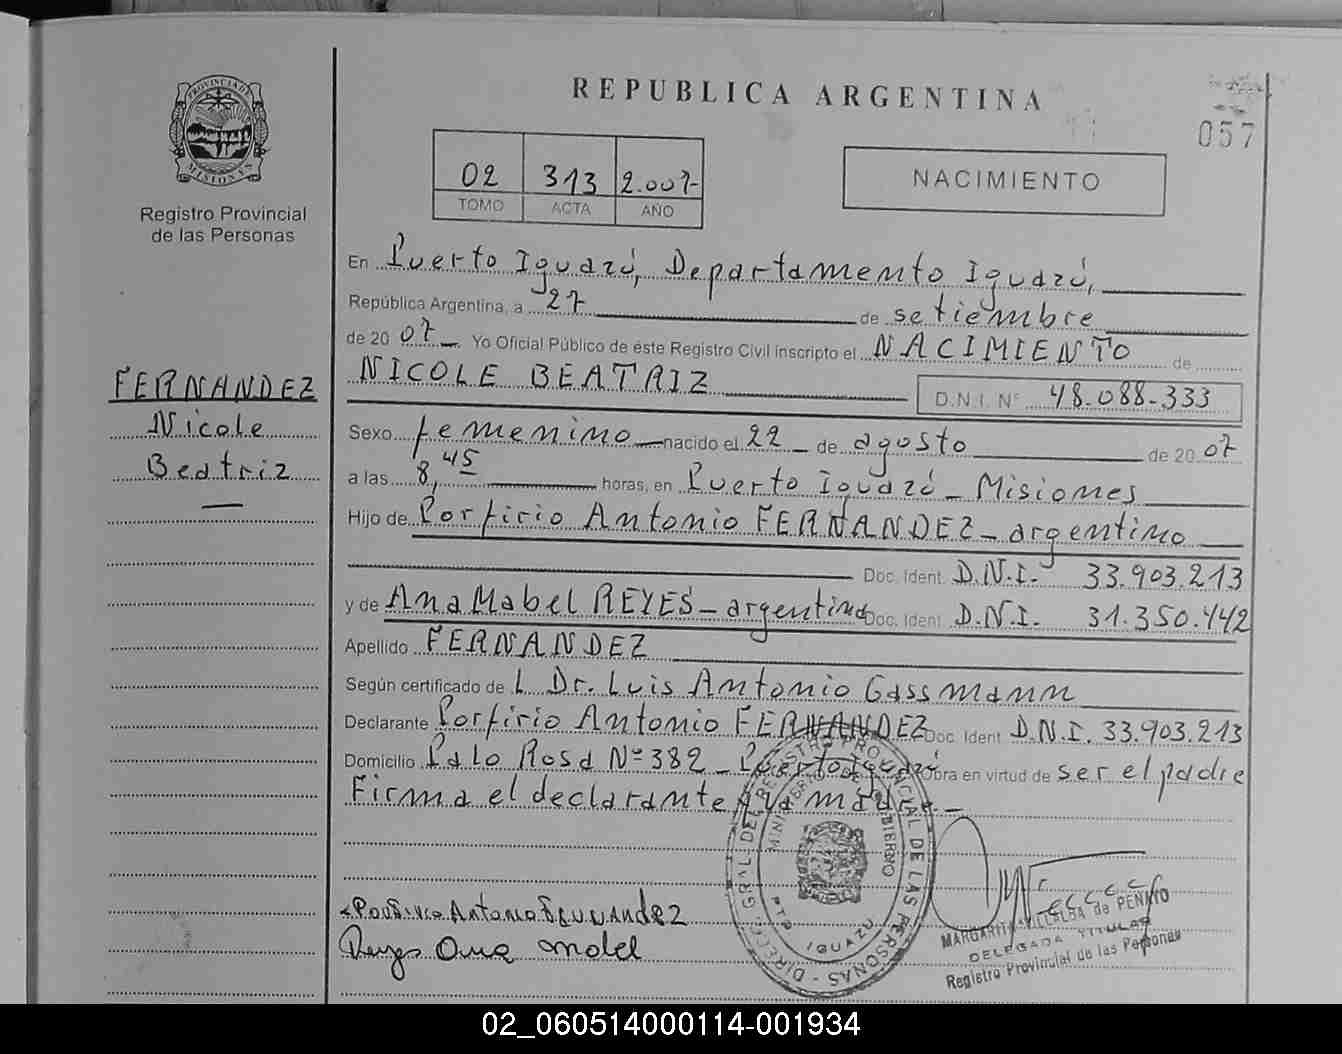 REPUBLICA ARGENTINA
057
PROVINCIA DE
MISIONES
Registro Provincial
de las Personas
02 313 2.007-
TOMO ACTA AÑO
NACIMIENTO
En Puerto Iguazú, Departamento Iguazú,
República Argentina, a 27 de setiembre
de 20 07 Yo Oficial Público de éste Registro Civil inscripto el NACIMIENTO de
NICOLE BEATRIZ D.N.I. Nº 48.088-333
FERNANDEZ
Nicole
Beatriz
Sexo femenino nacido el 22 de agosto de 20 07
a las 8,45 horas, en Puerto Iguazú - Misiones
Hijo de Porfirio Antonio FERNANDEZ - argentino
Doc. Ident. D.N.I. 33.903.213
y de Ana Mabel REYES - argentina Doc. Ident. D.N.I. 31.350.442
Apellido FERNANDEZ
Según certificado de L Dr. Luis Antonio Gassmann
Declarante Porfirio Antonio FERNANDEZ Doc. Ident. D.N.I. 33.903.213
Domicilio Palo Rosa Nº 382 - Puerto Iguazú Obra en virtud de ser el padre
Firma el declarante y la madre -
DIRECC. GRAL. DEL REGISTRO PROVINCIAL DE LAS PERSONAS
MINISTERIO DE GOBIERNO
PTO IGUAZU
Antonio Fernandez
Reyes Ana Mabel
MARGARITA VILLALBA de PENAYO
DELEGADA TITULAR
Registro Provincial de las Personas
02_060514000114-001934